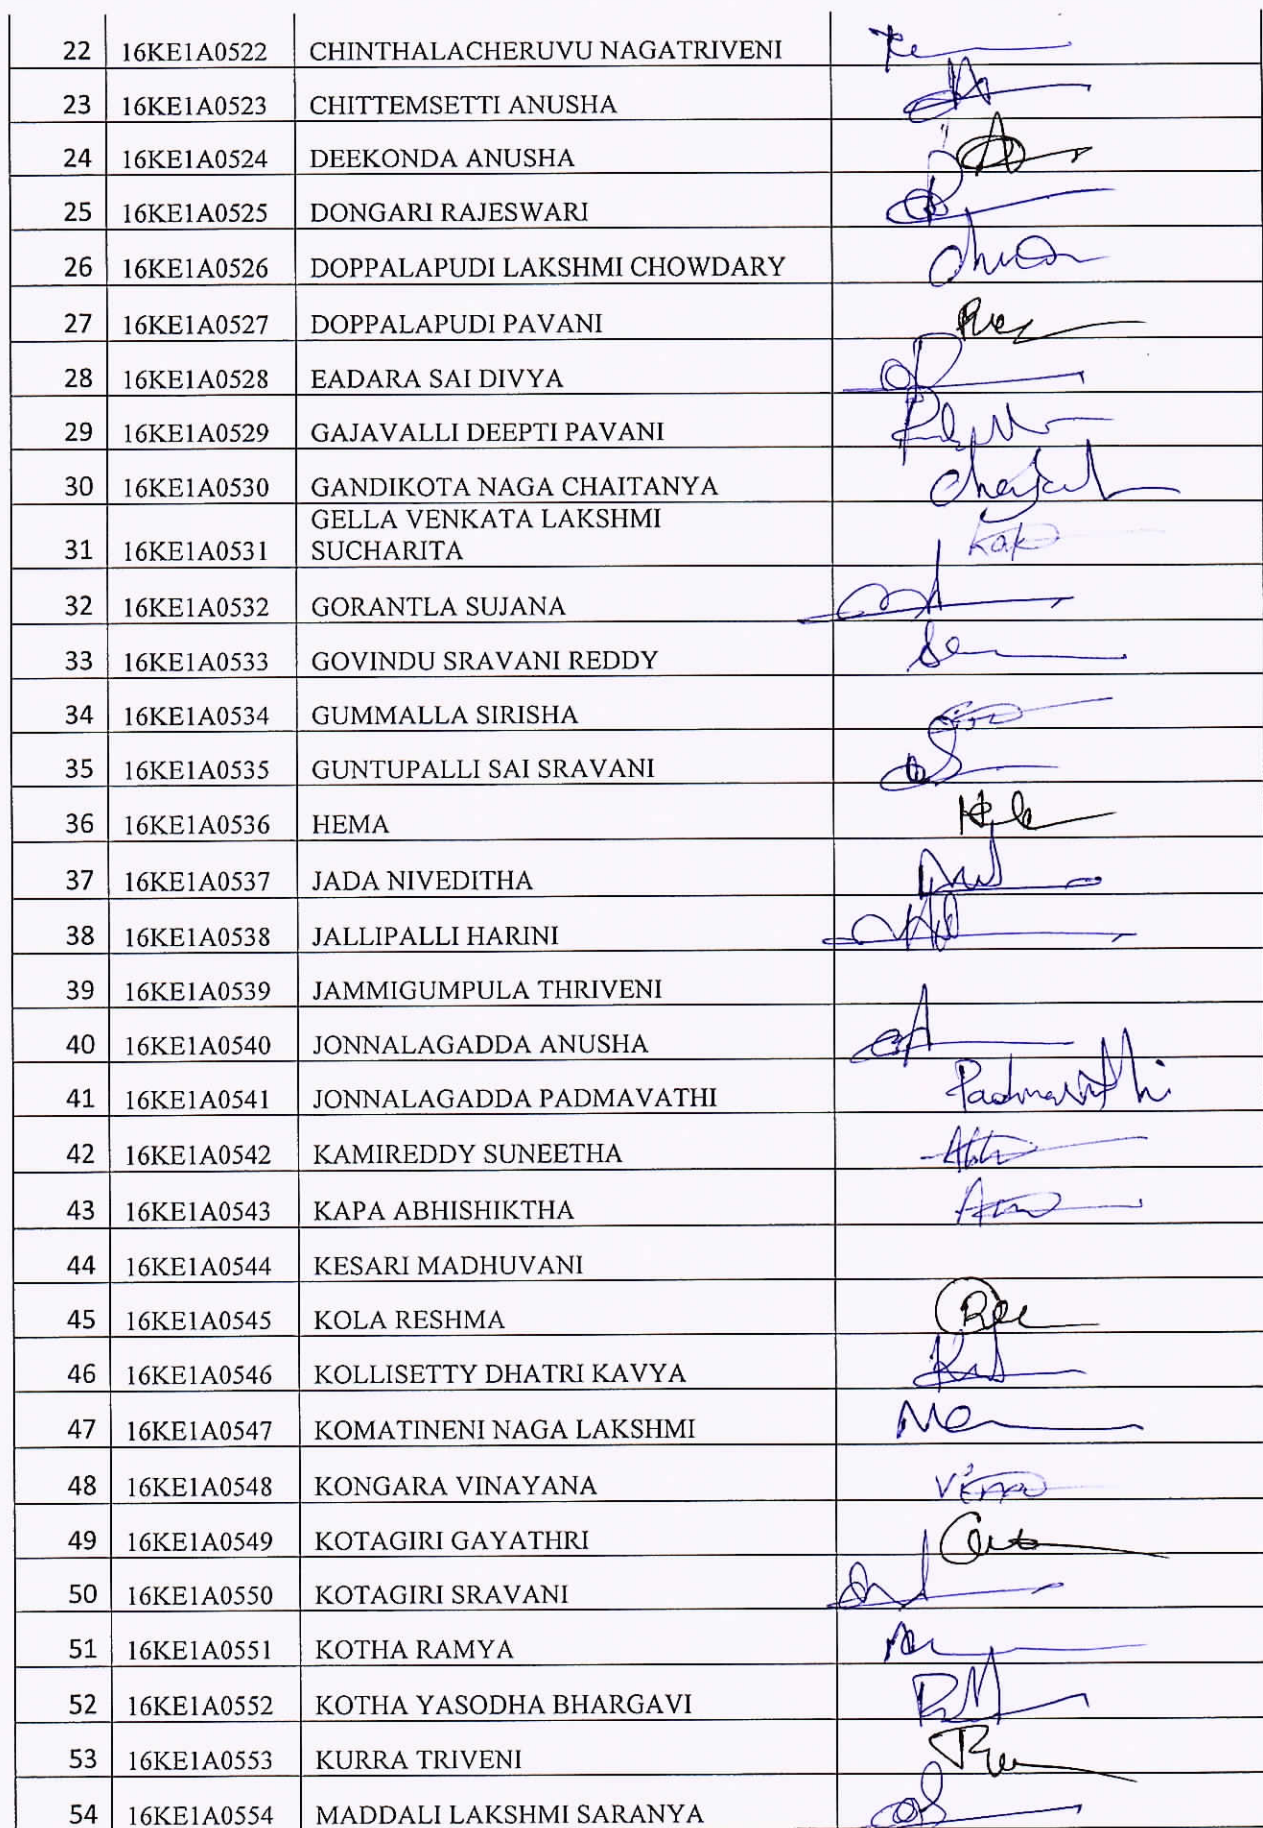 22 16KE1A0522 CHINTHALACHERUVU NAGATRIVENI
23 16KE1A0523 CHITTEMSETTI ANUSHA
24 16KE1A0524 DEEKONDA ANUSHA
25 16KE1A0525 DONGARI RAJESWARI
26 16KE1A0526 DOPPALAPUDI LAKSHMI CHOWDARY
27 16KE1A0527 DOPPALAPUDI PAVANI
28 16KE1A0528 EADARA SAI DIVYA
29 16KE1A0529 GAJAVALLI DEEPTI PAVANI
30 16KE1A0530 GANDIKOTA NAGA CHAITANYA
GELLA VENKATA LAKSHMI
31 16KE1A0531 SUCHARITA
32 16KE1A0532 GORANTLA SUJANA
33 16KE1A0533 GOVINDU SRAVANI REDDY
34 16KE1A0534 GUMMALLA SIRISHA
35 16KE1A0535 GUNTUPALLI SAI SRAVANI
36 16KE1A0536 HEMA
37 16KE1A0537 JADA NIVEDITHA
38 16KE1A0538 JALLIPALLI HARINI
39 16KE1A0539 JAMMIGUMPULA THRIVENI
40 16KE1A0540 JONNALAGADDA ANUSHA
41 16KE1A0541 JONNALAGADDA PADMAVATHI Padmavathi
42 16KE1A0542 KAMIREDDY SUNEETHA
43 16KE1A0543 KAPA ABHISHIKTHA
44 16KE1A0544 KESARI MADHUVANI
45 16KE1A0545 KOLA RESHMA
46 16KE1A0546 KOLLISETTY DHATRI KAVYA
47 16KE1A0547 KOMATINENI NAGA LAKSHMI
48 16KE1A0548 KONGARA VINAYANA
49 16KE1A0549 KOTAGIRI GAYATHRI
50 16KE1A0550 KOTAGIRI SRAVANI
51 16KE1A0551 KOTHA RAMYA
52 16KE1A0552 KOTHA YASODHA BHARGAVI
53 16KE1A0553 KURRA TRIVENI
54 16KE1A0554 MADDALI LAKSHMI SARANYA